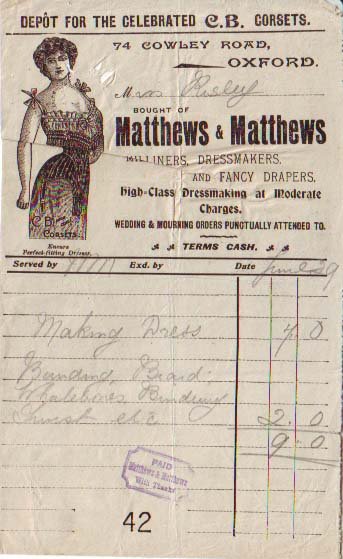 DEPÔT FOR THE CELEBRATED C.B. CORSETS.
74 COWLEY ROAD,
OXFORD.
Mrs Risley
BOUGHT OF
Matthews & Matthews
MILLINERS, DRESSMAKERS,
AND FANCY DRAPERS.
High-Class Dressmaking at Moderate
Charges.
WEDDING & MOURNING ORDERS PUNCTUALLY ATTENDED TO.
TERMS CASH.
C.B.
CORSETS
Ensure
Perfect-fitting Dresses.
Served by Exd. by Date June 29
Making Dress 7.0
Braid
Whalebones Binding
etc 2.0
9.0
PAID
Matthews & Matthews
With Thanks
42